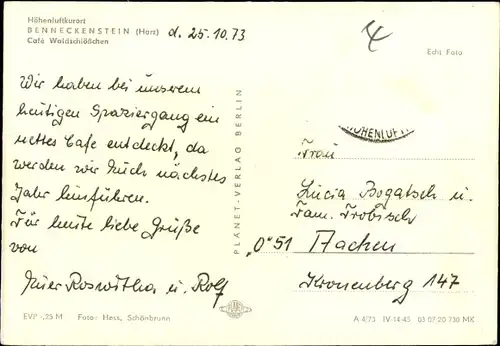 Höhenluftkurort
BENNECKENSTEIN (Harz) d. 25.10.73
Café Waldschlößchen
Echt Foto
Wir haben bei unserem
heutigen Spaziergang ein
nettes Cafe entdeckt, da
werden wir Euch nächstes
Jahr hinführen.
Für heute liebe Grüße
von
Euer Roswitha u. Rolf
PLANET-VERLAG BERLIN
HÖHENLUFT
Frau
Lucia Bogatsch u.
Fam. Trobisch
"0" 51 Aachen
Kronenberg 147
PLANET
EVP -,25 M Foto: Hess, Schönbrunn
A 4/73 IV-14-45 03 07 20 730 MK